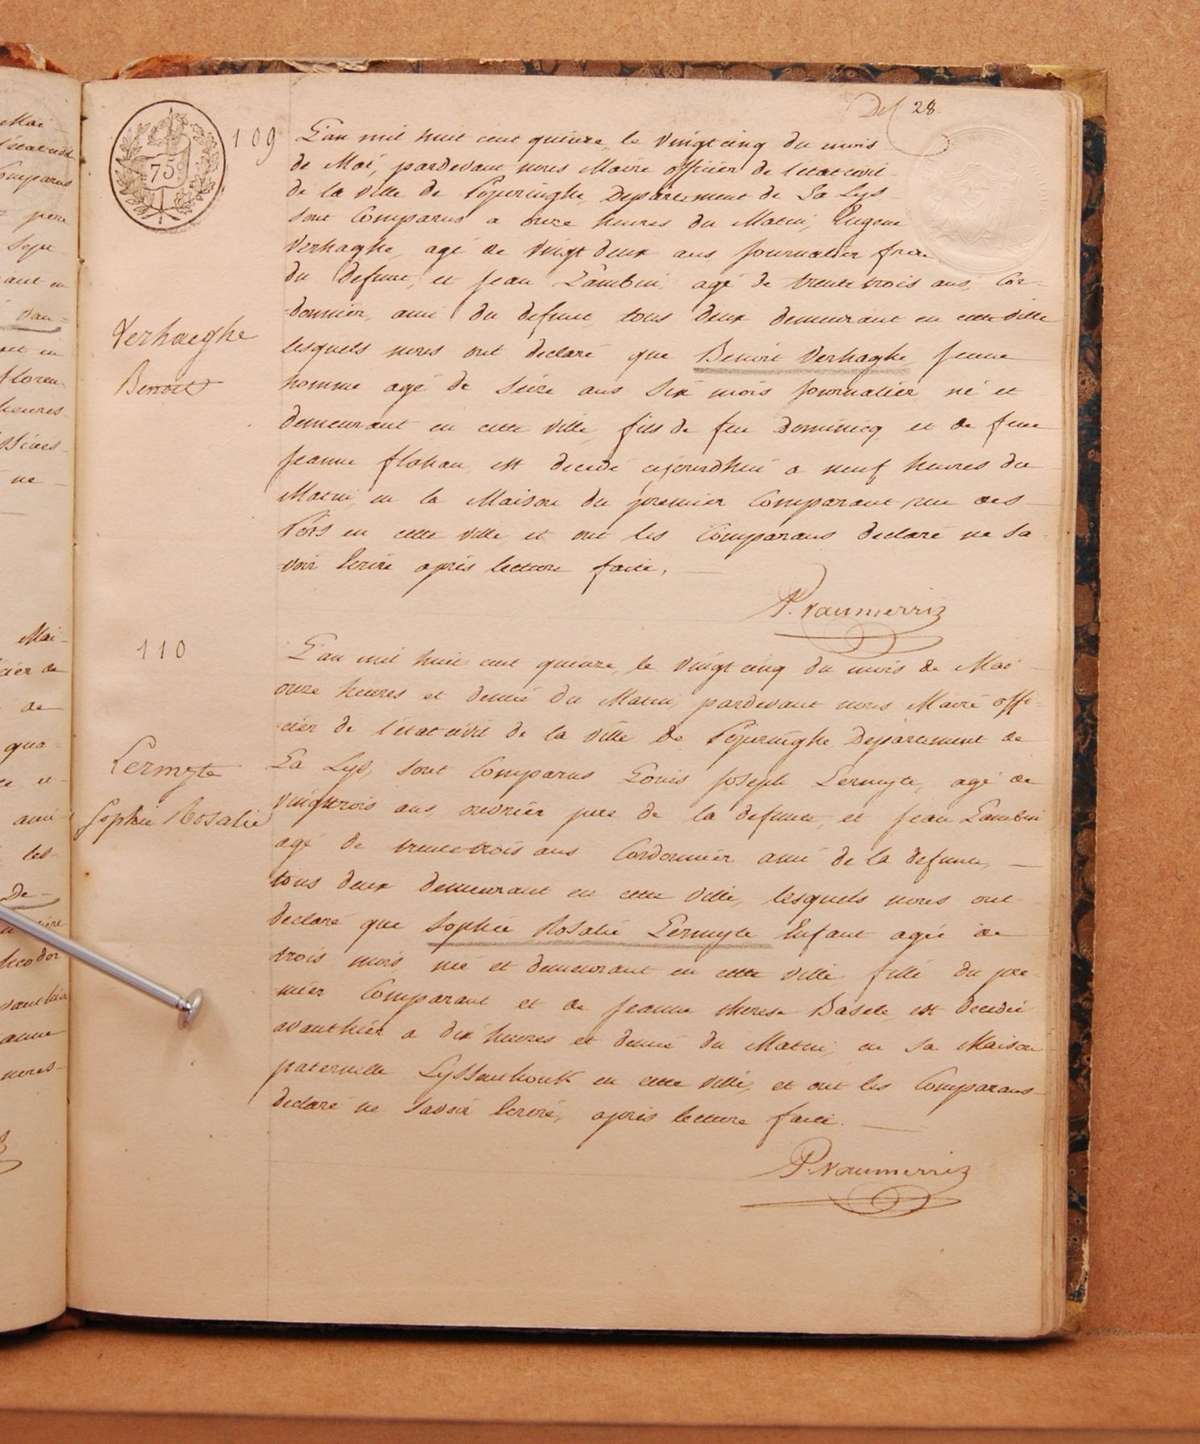 Del 28.
75
109
L'an mil huit cent quinze, le vingt cinq du mois
de Mai, pardevant nous Maire officier de l'etat civil
de la ville de Poperinghe, Departement de La Lys
sont Comparus a onze heures du Matin, Eugene
Verhaghe, agé de vingt deux ans journalier frere
du defunt, et Jean Lambin, agé de trente trois ans, Cor-
-donnier, ami du defunt, tous deux demeurant en cette ville
lesquels nous ont declaré que Benoit Verhaghe jeune
homme agé de seize ans six mois journalier né et
demeurant en cette ville, fils de feu Dominicq et de feue
Jeanne est decedé aujourdhui a neuf heures du
Matin, en la Maison du premier Comparant, rue des
Pots en cette ville, et ont les Comparans declaré ne sa-
-voir Ecrire après lecture faite,
Verhaeghe
Benoit
P. vanmerris
110
L'an mil huit cent quinze, le vingt cinq du mois de Mai
onze heures et demie du Matin, pardevant nous Maire offi-
-cier de l'etat civil de la ville de Poperinghe Departement de
La Lys, sont Comparus Louis Joseph Lermyte, agé de
vingt trois ans, ouvrier pere de la defunte, et Jean Lambin
agé de trente trois ans Cordonnier ami de la defunte,
tous deux demeurant en cette ville, lesquels nous ont
declaré que Sophie Rosalie Lermyte Enfant agée de
trois mois, née et demeurant en cette ville fille du pre-
-mier Comparant et de Jeanne therese est decedée
avanthier a dix heures et demie du Matin, en sa Maison
paternelle en cette ville, et ont les Comparans
declaré ne savoir Ecrire, après lecture faite.
Lermyte
Sophie Rosalie
P. vanmerris